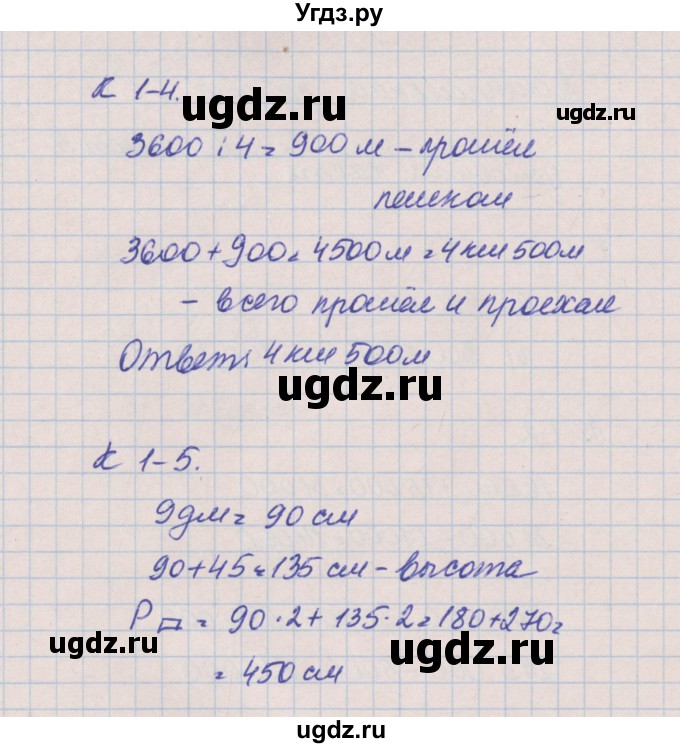 Угдз.ру
К 1-4.
ugdz.ru
ugdz.ru
3600 : 4 = 900 м - прошёл
пешком
3600 + 900 = 4500 м = 4 км 500 м
- всего прошёл и проехал
Ответ: 4 км 500 м
ugdz.ru
К 1-5.
ugdz.ru
9 дм = 90 см
90 + 45 = 135 см - высота
P▱ = 90 · 2 + 135 · 2 = 180 + 270 =
ugdz.ru
ugdz.ru
= 450 см
ugdz.ru